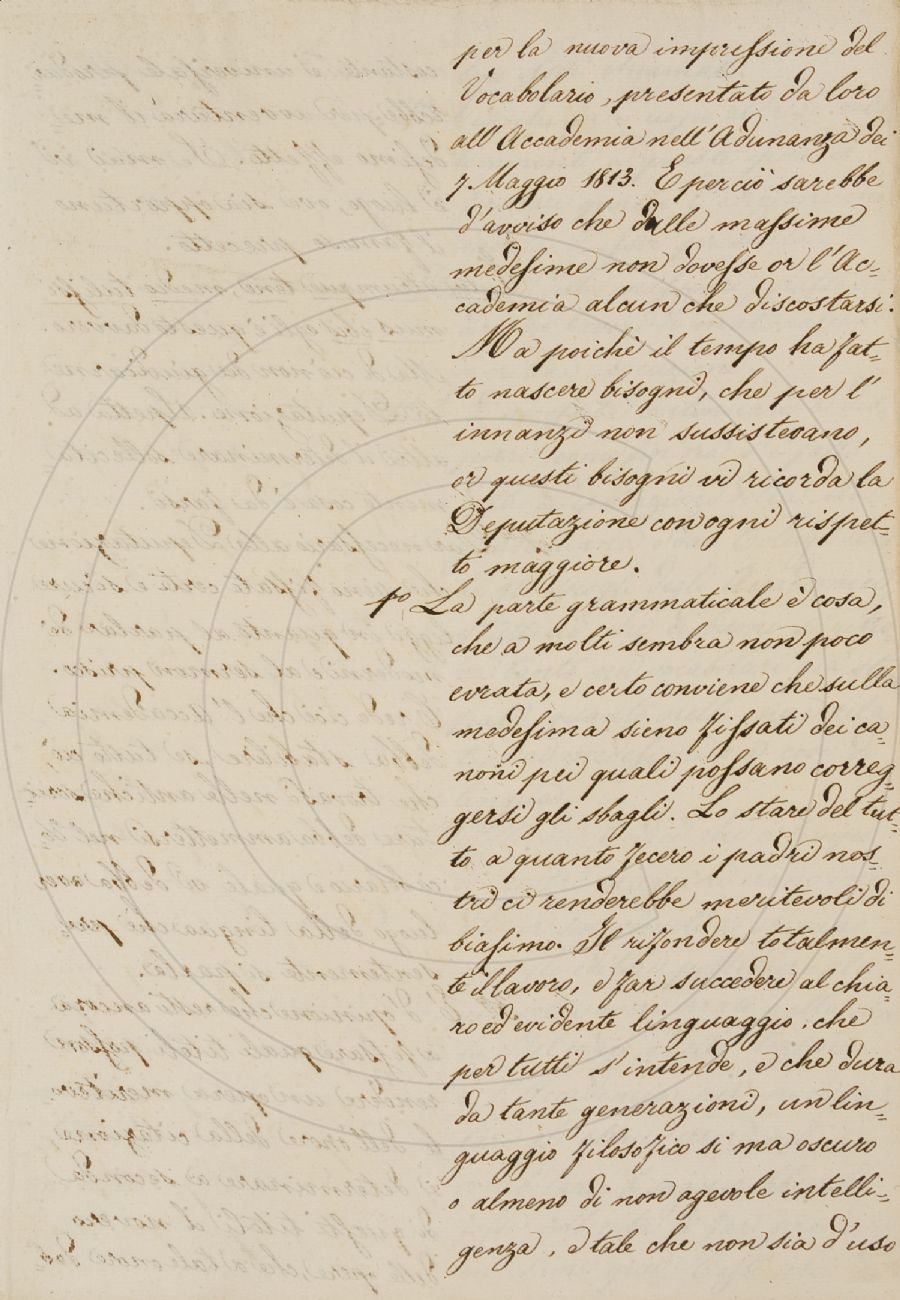 per la nuova impressione del
Vocabolario, presentato da loro
all'Accademia nell'Adunanza dei
7. Maggio 1813. E perciò sarebbe
d'avviso che dalle massime
medesime non dovesse or l'Ac=
cademia alcun che discostarsi.
Ma poichè il tempo ha fat=
to nascere bisogni, che per l'
innanzi non sussistevano,
or questi bisogni vi ricorda la
Deputazione con ogni rispet=
to maggiore.
1o La parte grammaticale è cosa,
che a molti sembra non poco
errata, e certo conviene che sulla
medesima sieno fissati dei ca=
noni pei quali possano correg=
gersi gli sbagli. Lo stare del tut=
to a quanto fecero i padri nos=
tri ci renderebbe meritevoli di
biasimo. Il rifondere totalmen=
te il lavoro, e far succedere al chia=
ro ed evidente linguaggio, che
per tutti s'intende, e che dura
da tante generazioni, un lin=
guaggio filosofico si ma oscuro
o almeno di non agevole intelli=
genza, e tale che non sia d'uso